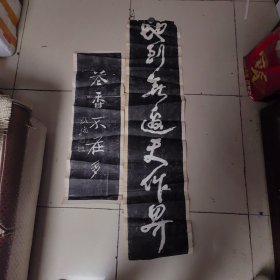 地到無邊天作界
花香不在多